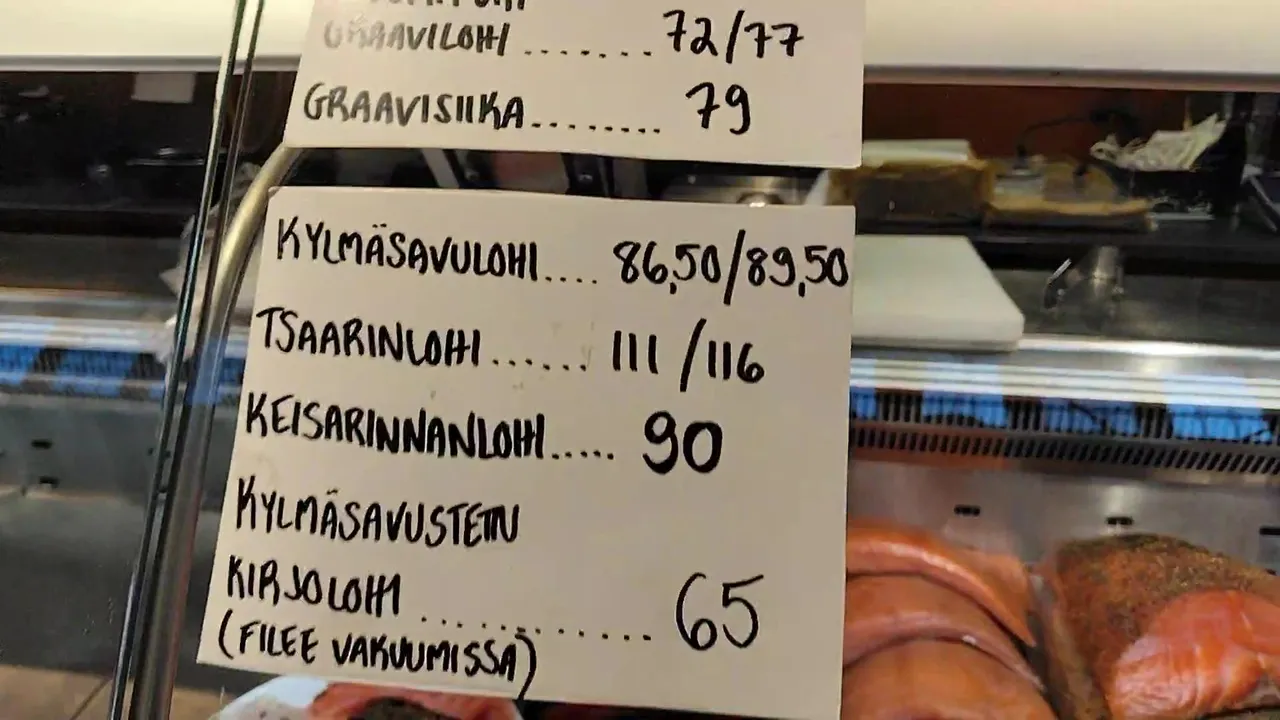 GRAAVILOHI ....... 72/77
GRAAVISIIKA........ 79
KYLMÄSAVULOHI.... 86,50/89,50
TSAARINLOHI ...... 111/116
KEISARINNANLOHI..... 90
KYLMÄSAVUSTETTU
KIRJOLOHI ............ 65
(FILEE VAKUUMISSA)